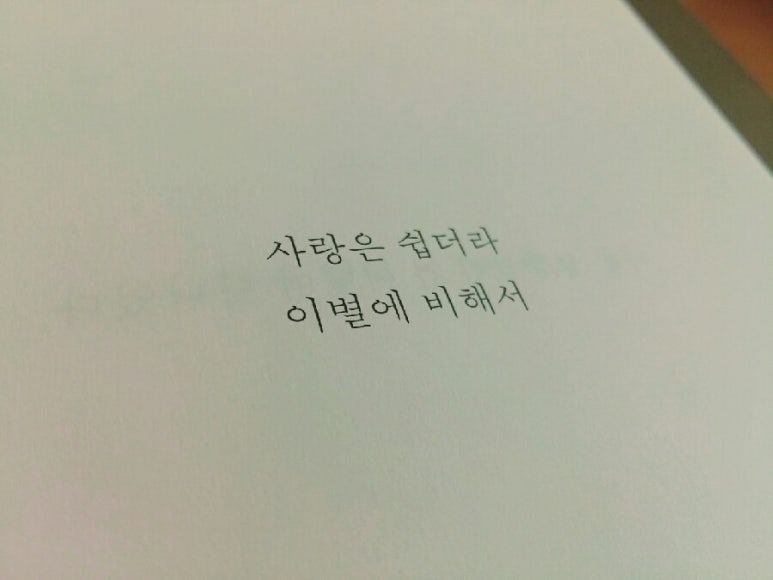 사랑은 쉽더라
이별에 비해서